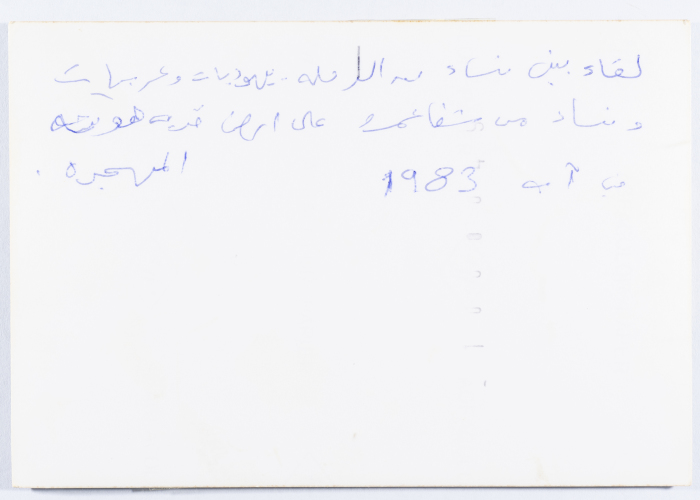 لقاء بين نساء من الرمله - يهوديات وعربيات
ونساء من شفاعمرو على ارض قرية هوشه
المهجره .
ب آب 1983